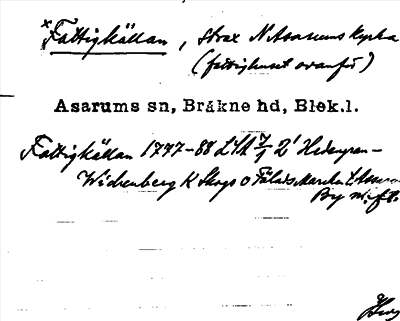 × Fattigkällan, strax N Asarums kyrka
(fattighuset ovanför)
Asarums sn, Bräkne hd, Blek.l.
Fattigkällan 1777-88 LSA 7/1 2¹
Wickenberg K Skogs o Fälads Marken t. Asarum
By